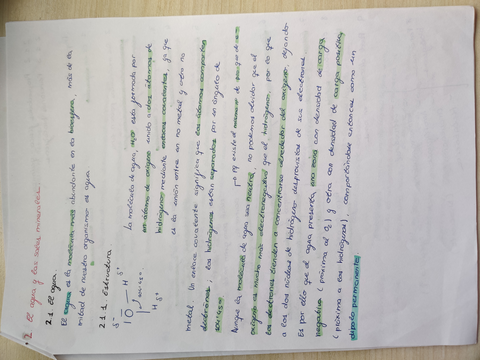 2. El agua y las sales minerales.
2.1. El agua
El agua es la molécula más abundante en los
mitad de nuestro organismo es agua.
2.1.1 Estructura
δ-
O H δ+
H δ+
La molécula de agua, está formada por
un átomo de oxígeno unido a dos átomos de
hidrógeno mediante enlaces covalentes, ya que
es la unión entre un no metal y otro no
metal. Un enlace covalente significa que los átomos comparten
electrones; los hidrógenos están separados por un ángulo de
104'45º
Aunque la molécula de agua sea neutra, no podemos olvidar que el
oxígeno es mucho más electronegativo que el hidrógeno, por lo que
los electrones tienden a concentrarse alrededor del oxígeno, dejando
a los dos núcleos de hidrógeno desprovistos de sus electrones.
Es por ello que el agua presenta una zona con densidad de carga
negativa (próxima al O₂) y otra con densidad de carga positiva
(próxima a los hidrógenos), comportándose entonces como un
dipolo permanente.